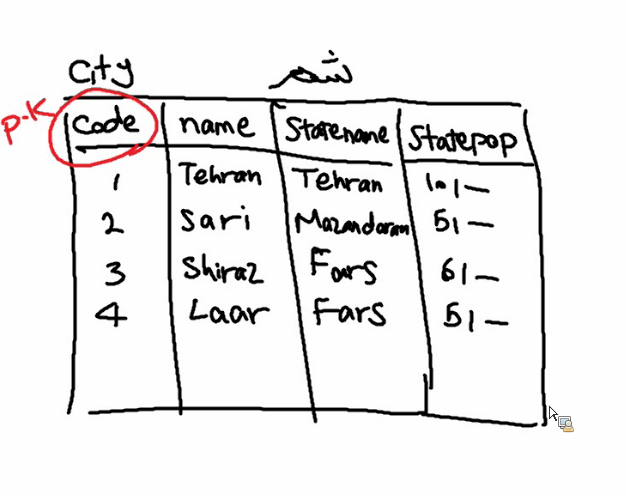 City شهر
P.K
Code name Statename Statepop
1 Tehran Tehran
2 Sari Mazandaran 51—
3 Shiraz Fars 61—
4 Laar Fars 51—